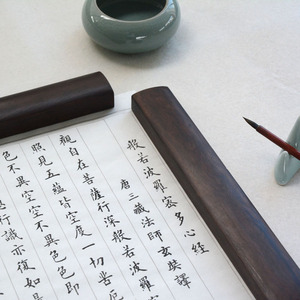 般若波羅蜜多心經
唐三藏法師玄奘譯
觀自在菩薩行深般若波羅
照見五蘊皆空度一切苦厄
色不異空空不異色色即
受想行識亦復如